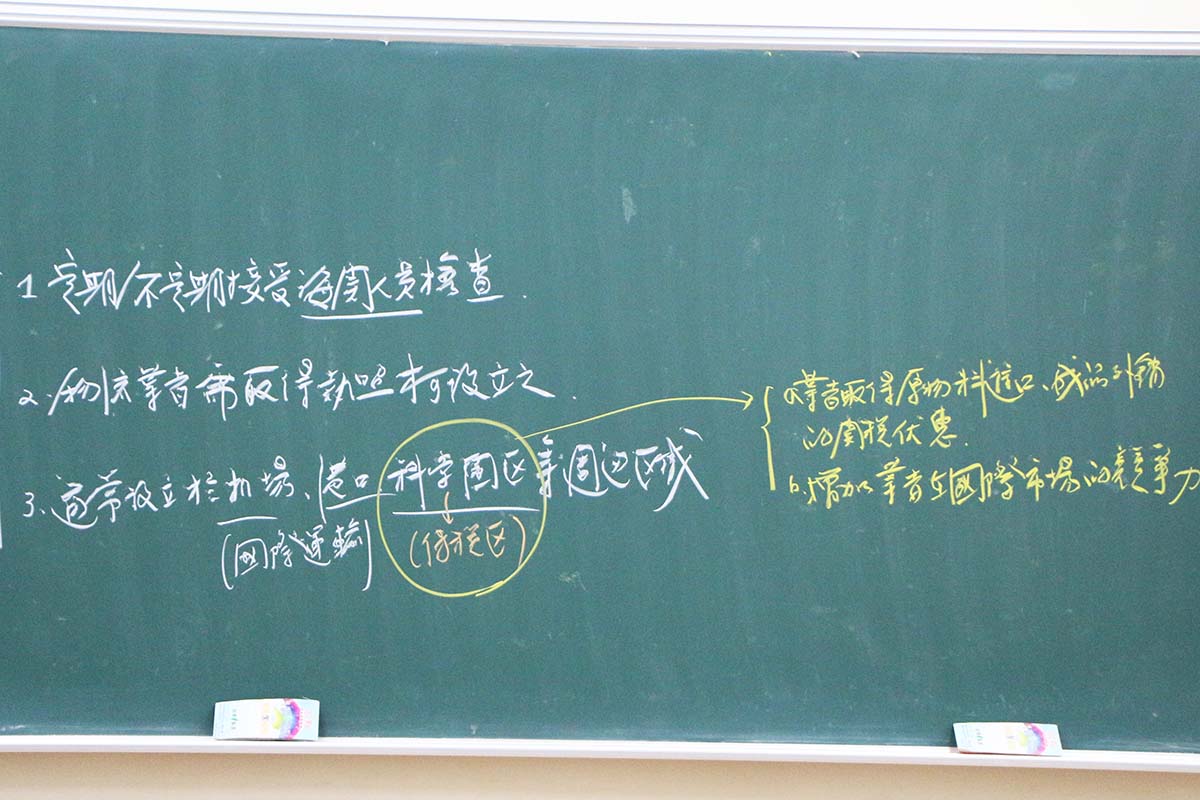 1 定期/不定期接受海関人員檢查.
2. 物流業者需取得執照才可設立之.
3. 通常設立於机場、港口、科学園区等週边区域
(國際運輸)
(保税区)
a.業者取得原物料進口、成品外銷
的関税优惠.
b.增加業者在國際市場的競爭力